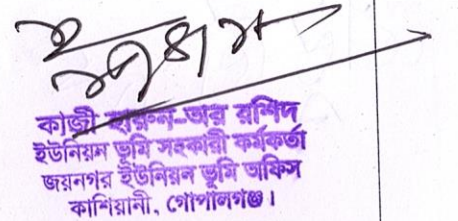 কাজী হারুন-অর রশিদ
ইউনিয়ন ভূমি সহকারী কর্মকর্তা
জয়নগর ইউনিয়ন ভূমি অফিস
কাশিয়ানী, গোপালগঞ্জ।